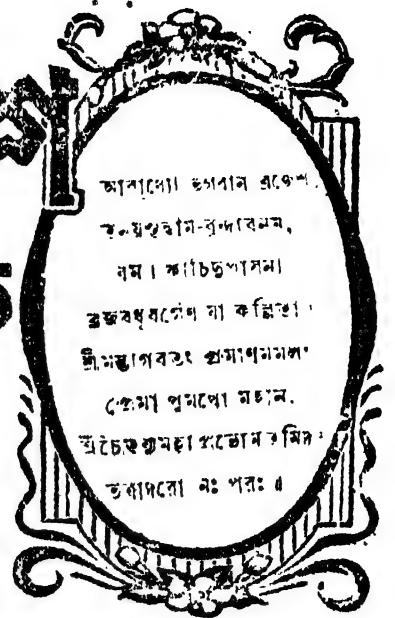 আরাধ্যো ভগবান ব্রজেশ
তনয়স্তদ্ধাম-বৃন্দাবনম,
রম্যা কাচিদুপাসনা
ব্রজবধূবর্গেণ যা কল্পিতা।
শ্রীমদ্ভাগবতং প্রমাণমমলং
প্রেমা পুমর্থো মহান,
শ্রীচৈতন্যমহাপ্রভোর্মতমিদং
তত্রাদরো নঃ পরঃ॥